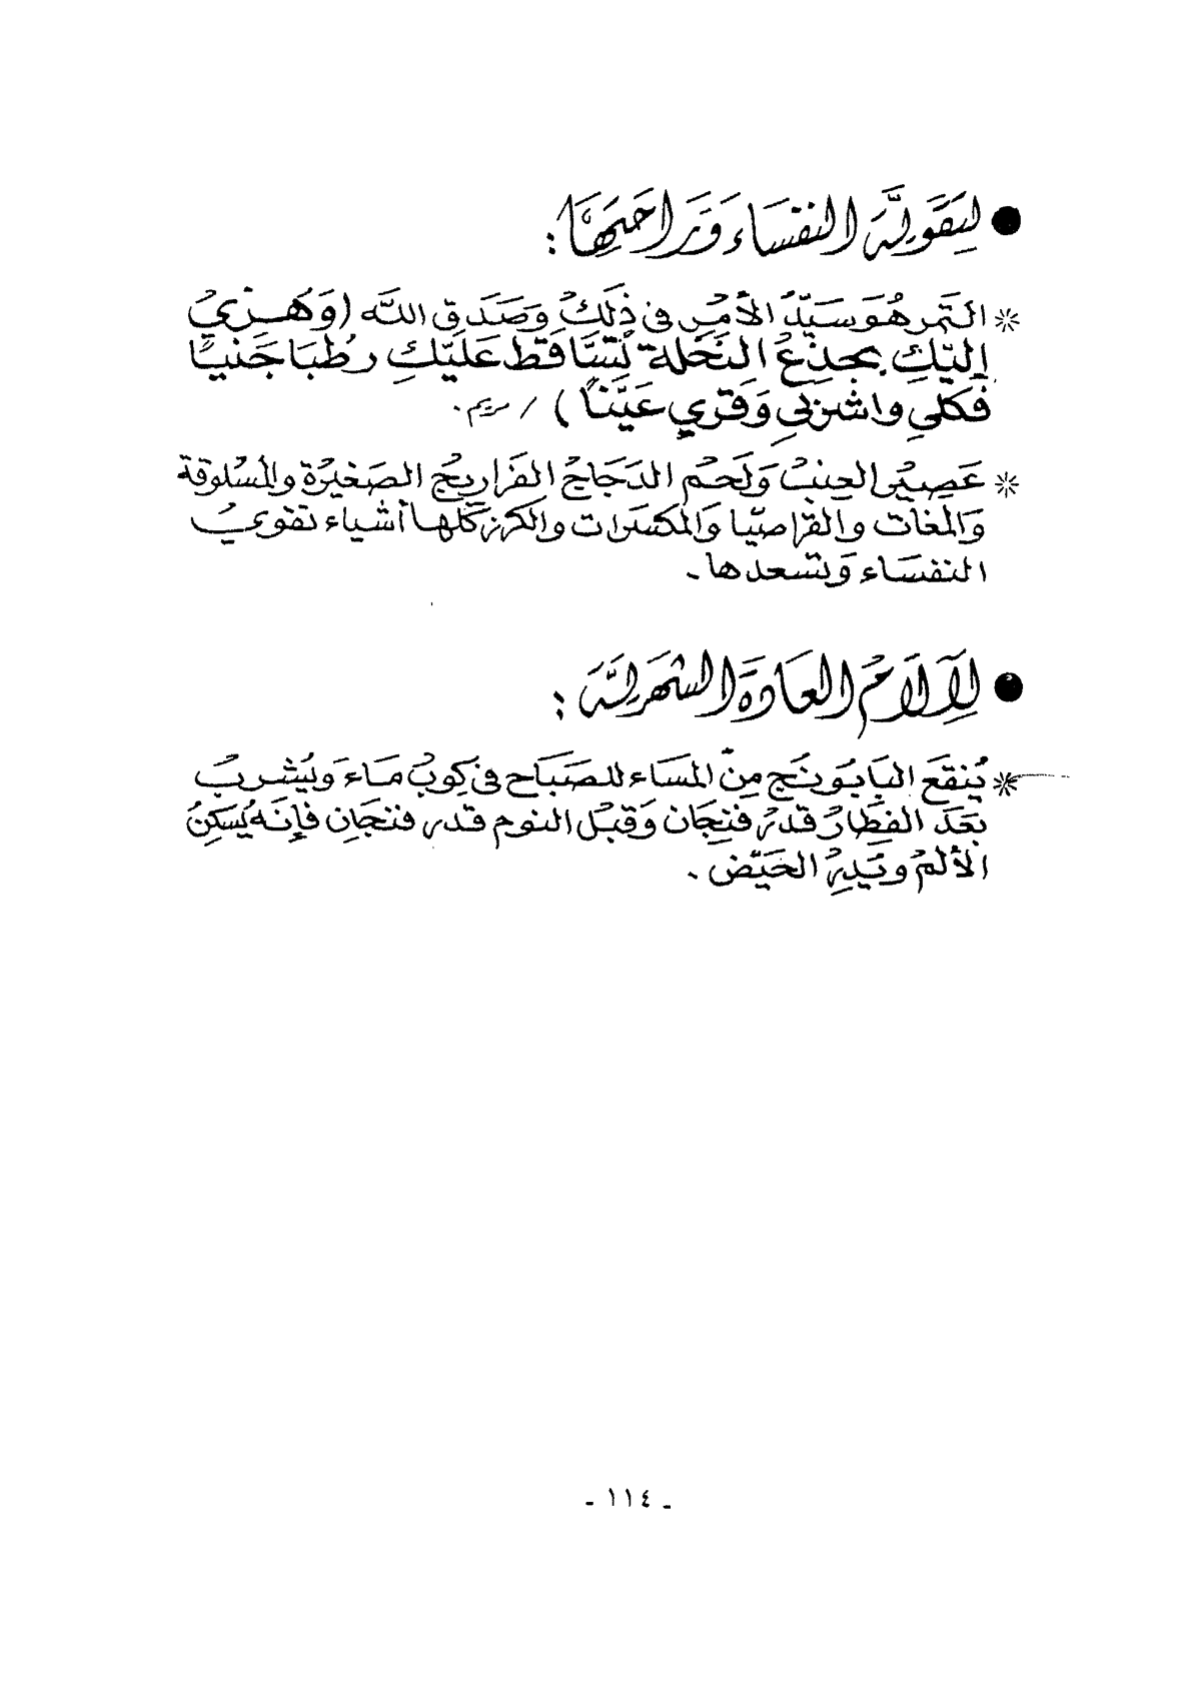 ● لتقوية النفساء وراحتها :
* التمر هو سيد الأمر في ذلك وصدق الله (وهزي
إليك بجذع النخلة تساقط عليك رطبا جنيا
فكلي واشربي وقري عينا) / مريم .
* عصير العنب ولحم الدجاج الفراريج الصغيرة والمسلوقة
والمغات والقراصيا والمكسرات والكرز كلها أشياء تقوي
النفساء وتسعدها .
● لآلام العادة الشهرية :
* ينقع البابونج من المساء للصباح في كوب ماء ويشرب
بعد الفطار قدر فنجان وقبل النوم قدر فنجان فإنه يسكن
الألم ويدر الحيض .
- ١١٤ -